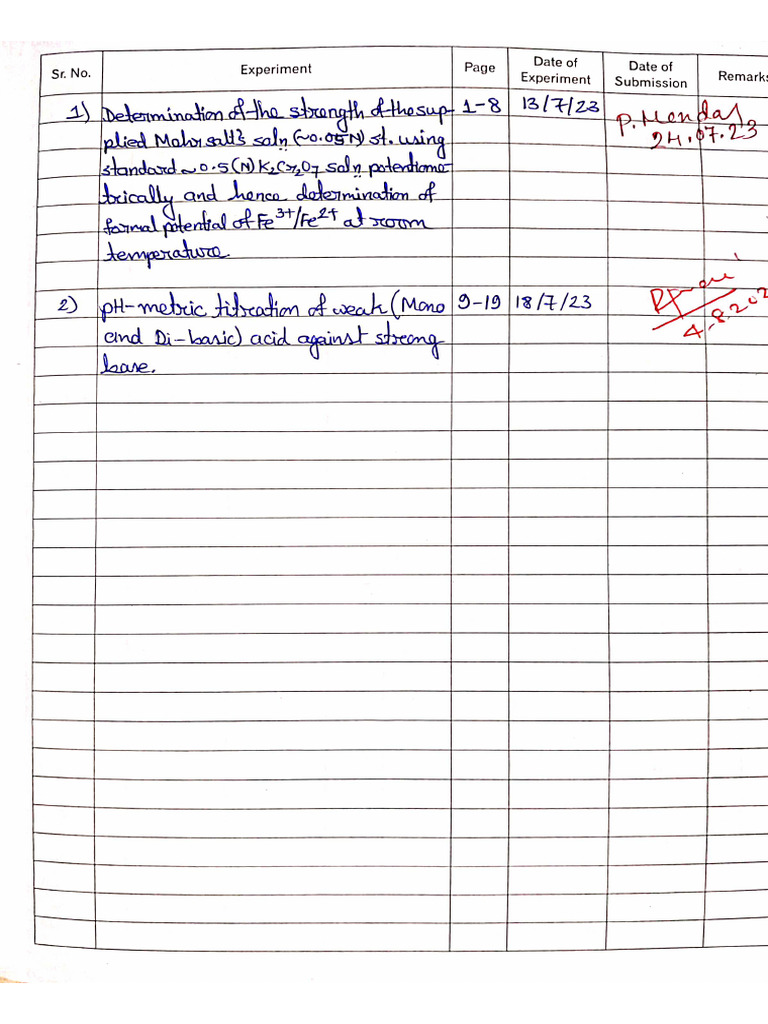 Sr. No. Experiment Page Date of Experiment Date of Submission Remarks
1) Determination of the strength of the sup- 1-8 13/7/23 P. Mondal
plied Mohr salt's solṇ (~0.05N) st. using 24.07.23
standard ~0.5(N) K2Cr2O7 solṇ potentiome-
trically and hence determination of
formal potential of Fe3+/Fe2+ at room
temperature
2) pH-metric titration of weak (Mono 9-19 18/7/23
and Di-basic) acid against strong 4.8.202
base.